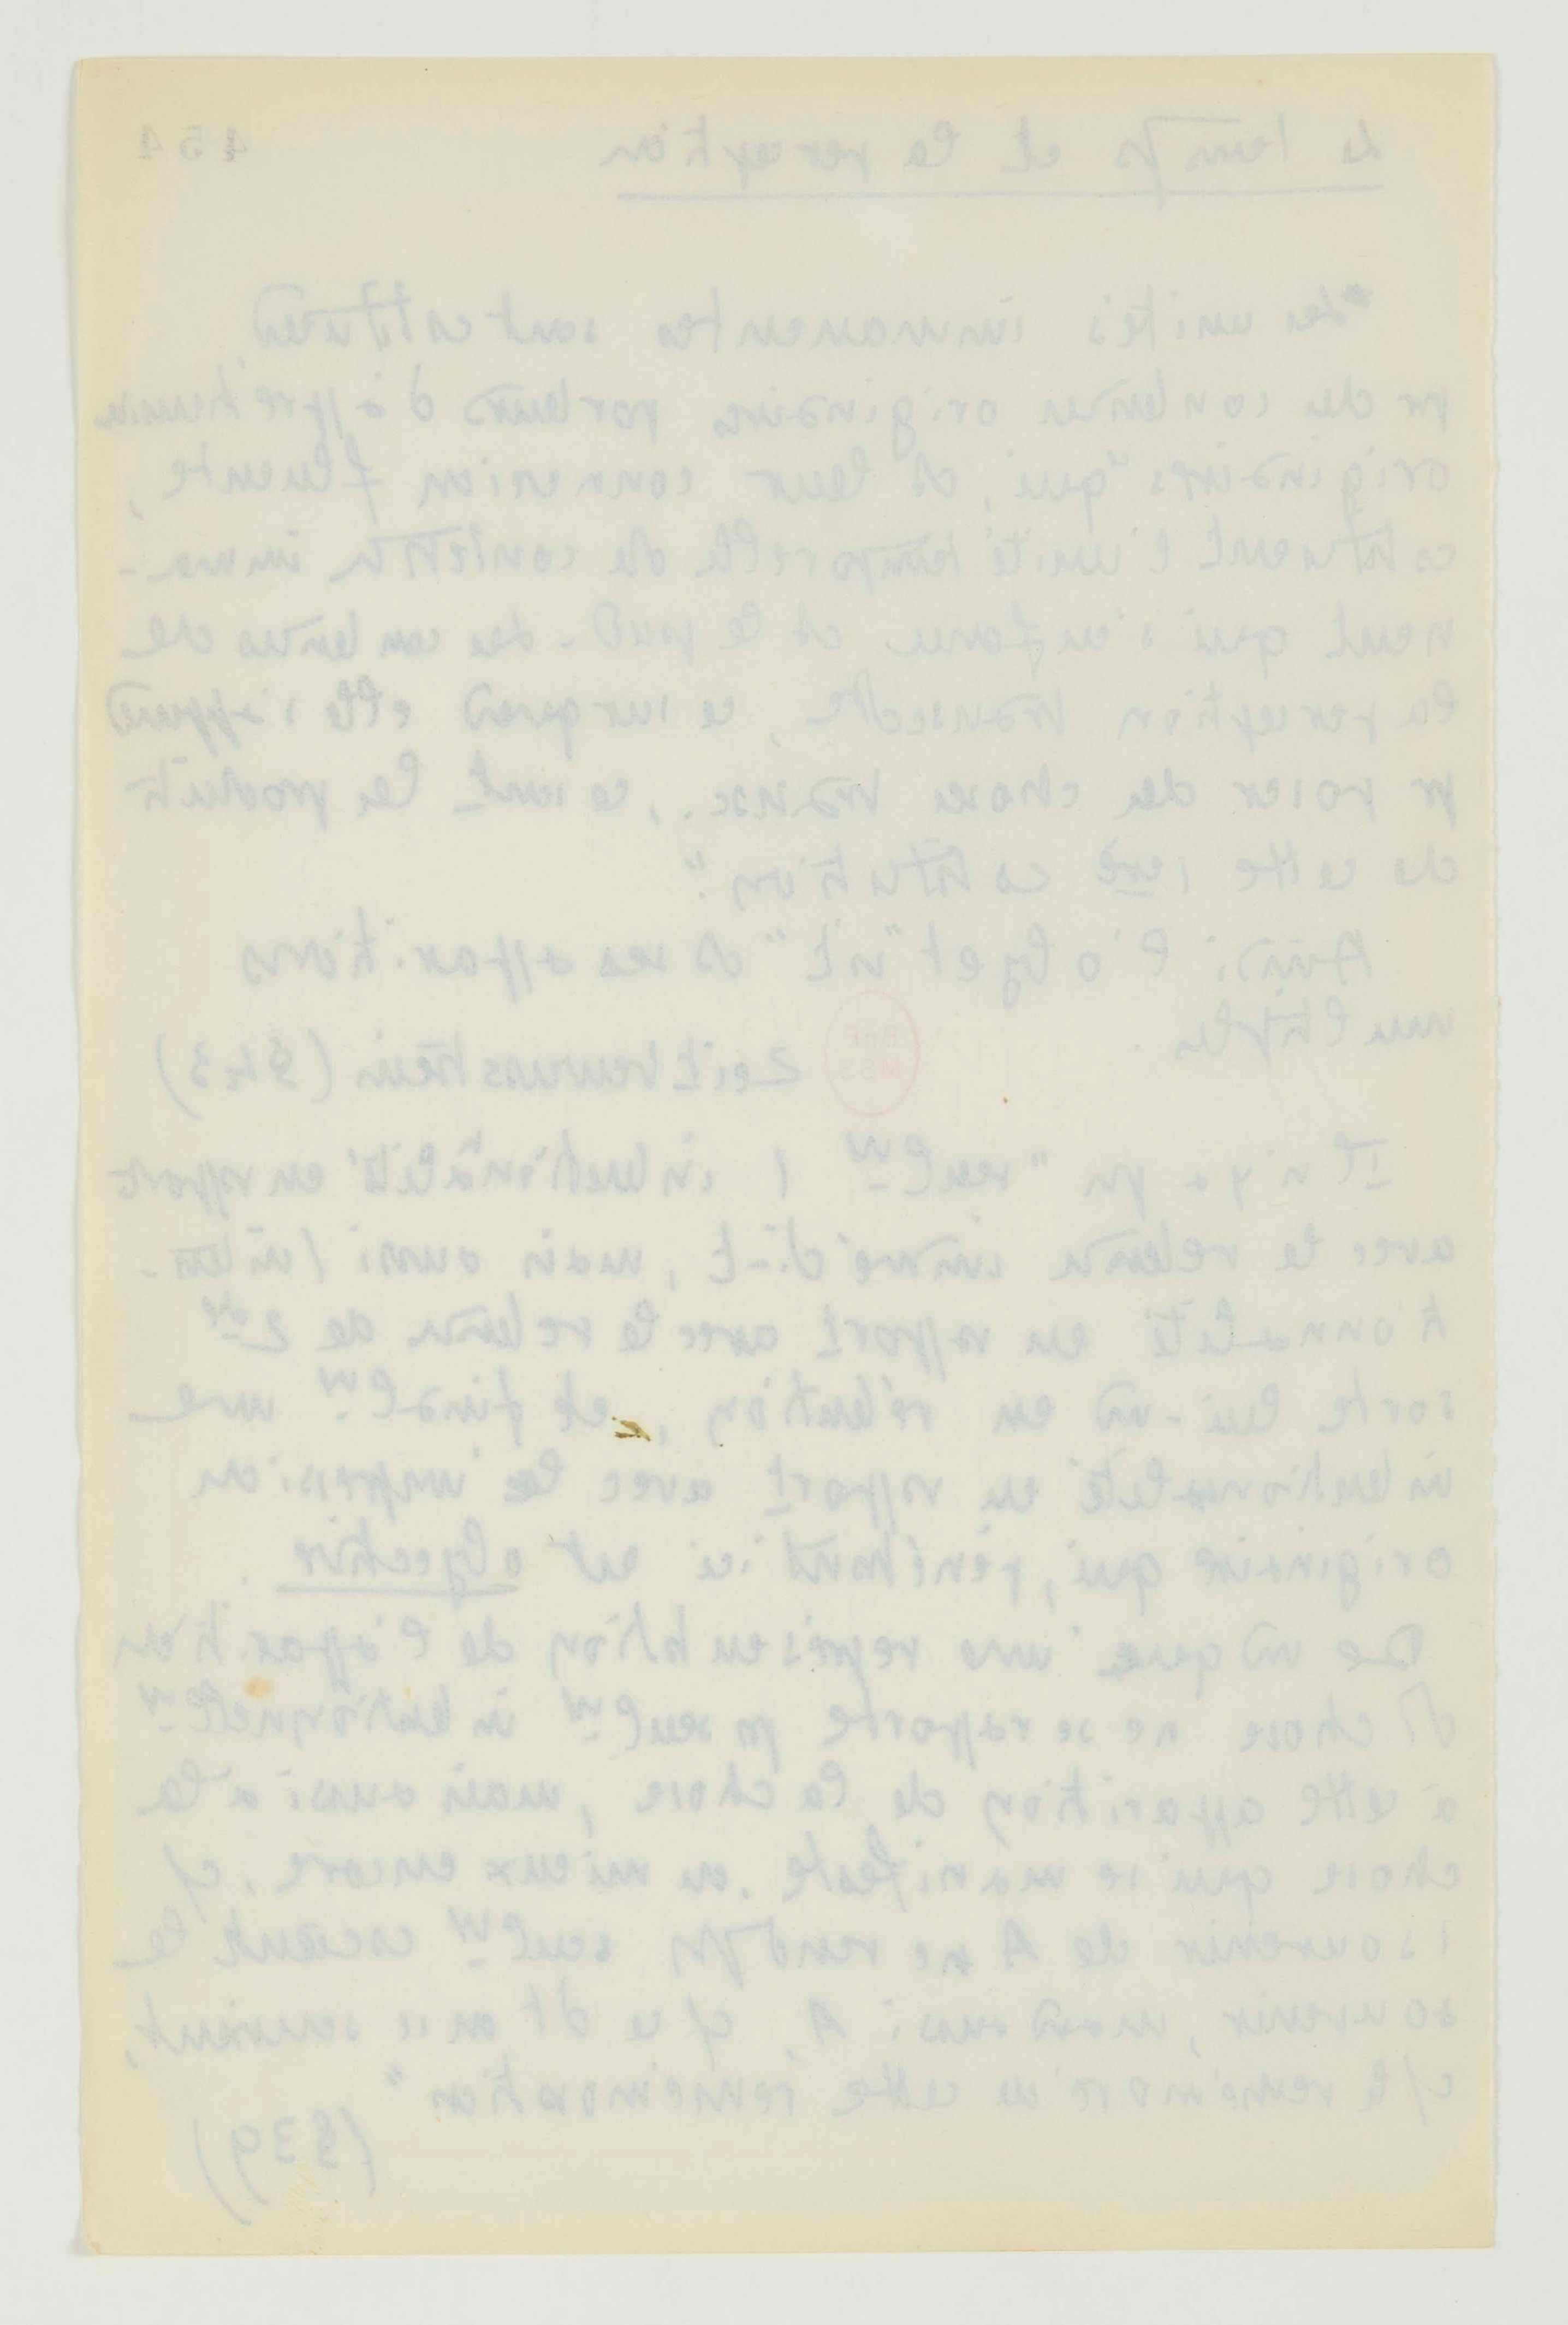 Le temps et la perception
454
"Les unités immanentes sont cstituées
pr des contenus originaires porteurs d'appréhensions
originaires "qui, ds leur connexion fluente,
cstituent l'unité temporelle du contenu imma-
nent qui s'enfonce ds le passé - des contenus de
la perception
pr poser des choses transc., ce sont les produits
de cette cstitution".
Ainsi l'objet "ds ses apparitions
multiples.
BnF
MSS
Zeitbewusstsein (§ 43)
Il n'y a pas "seulmt 1 intentionalité en rapport
avec le retenu immédiat, mais aussi 1 inten-
tionnalité en rapport avec le retenu de 2de
sorte lui-m en rétention, et finalmt une
intentionalité en rapport avec les impression
originaire qui, pénétrant ici est objective.
De m que une représentation de l'apparition
d'1 chose ne se rapporte ps seulmt intentionnellmt
à cette apparition de la chose, mais aussi à la
chose qui se manifeste. ou mieux encore. c/
1 souvenir de A ne rend ps seulmt cscient le
souvenir, mais aussi A, c/ ce dt on se souvient,
c/ le remémoré de cette remémoration"
(§ 39)